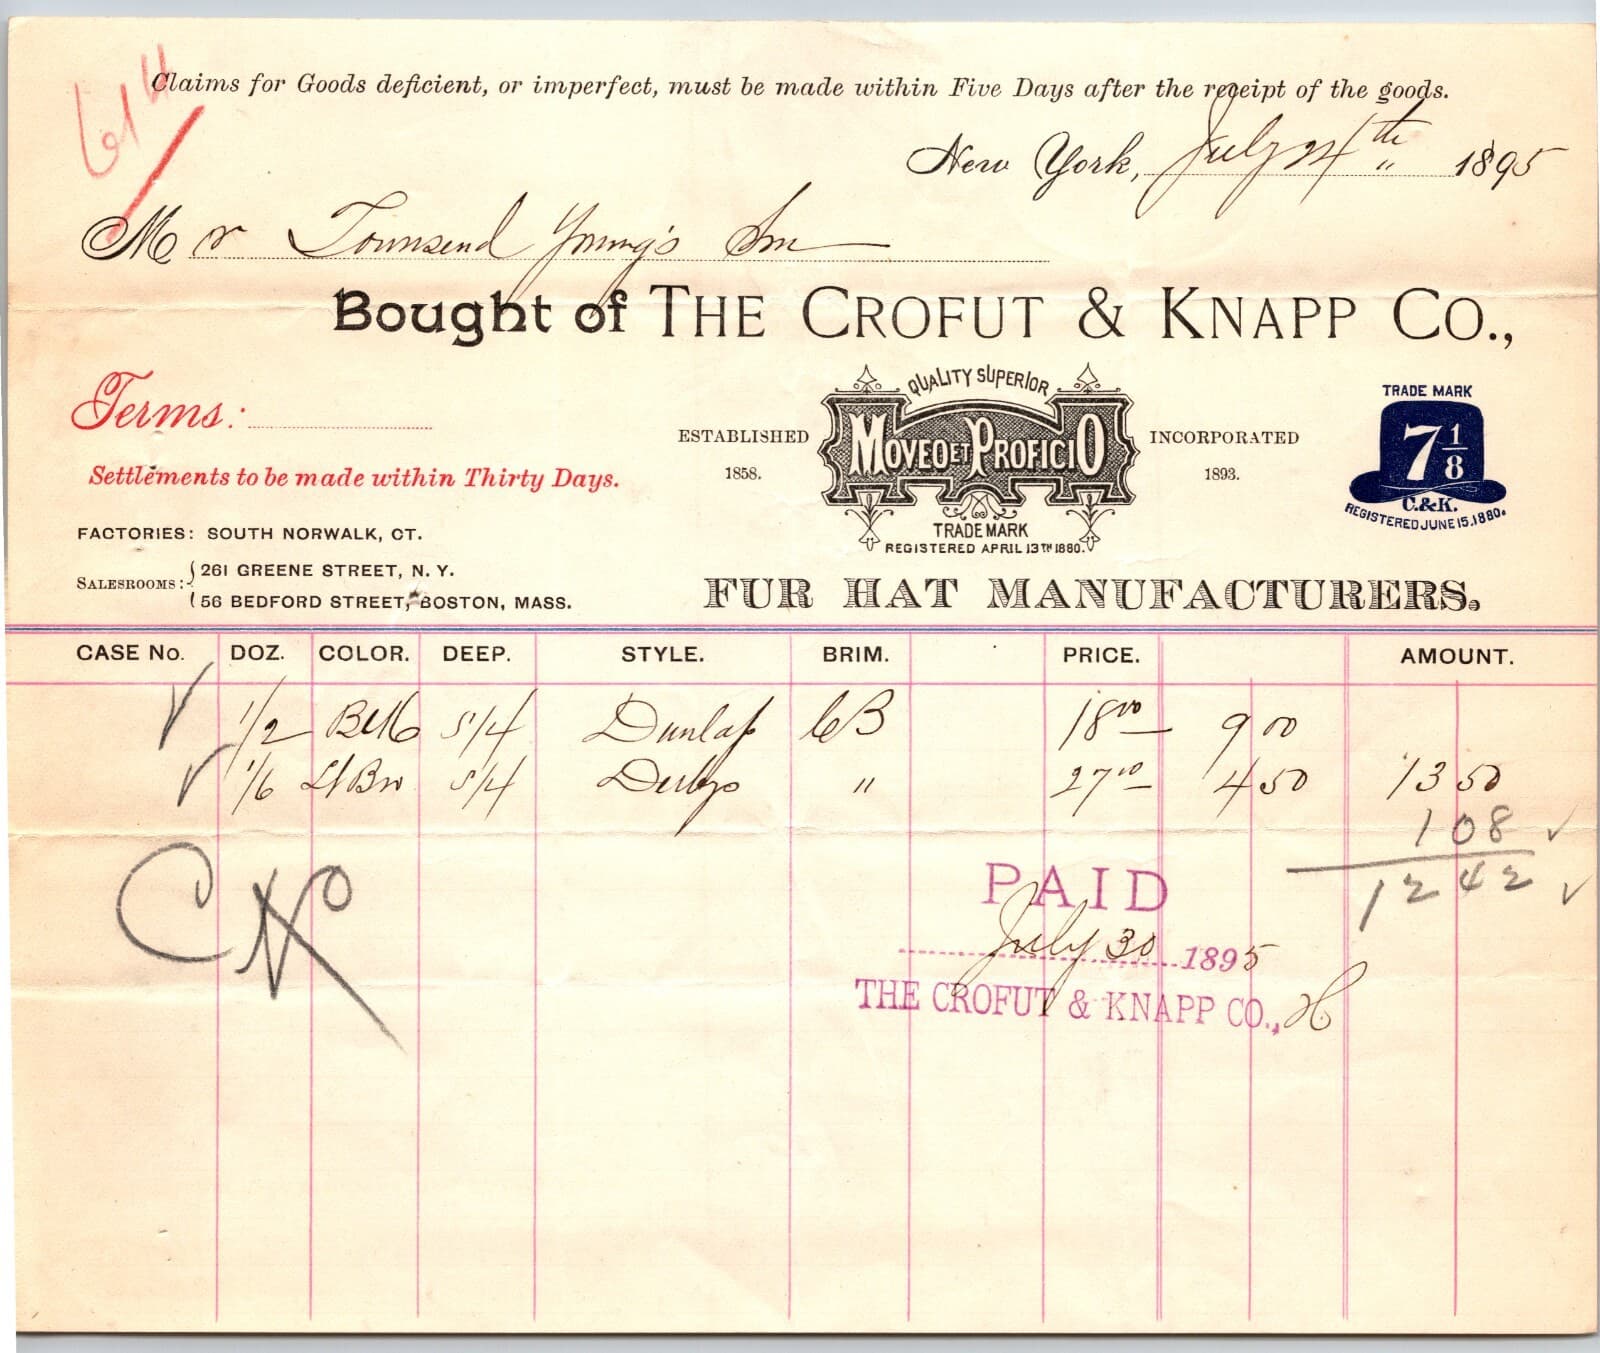 614
Claims for Goods deficient, or imperfect, must be made within Five Days after the receipt of the goods.
New York, July 24th " 1895
Mr Townsend Young's Son
Bought of THE CROFUT & KNAPP CO.,
Terms:
Settlements to be made within Thirty Days.
FACTORIES: SOUTH NORWALK, CT.
SALESROOMS: 261 GREENE STREET, N. Y.
56 BEDFORD STREET, BOSTON, MASS.
ESTABLISHED
1858.
QUALITY SUPERIOR
MOVEO ET PROFICIO
TRADE MARK
REGISTERED APRIL 13TH 1880.
INCORPORATED
1893.
TRADE MARK
7 1/8
C.&K.
REGISTERED JUNE 15, 1880.
FUR HAT MANUFACTURERS.
CASE No. DOZ. COLOR. DEEP. STYLE. BRIM. PRICE. AMOUNT.
1/2 Blk 5 1/4 Dunlap CB 18 00 9 00
1/6 Lt Brn 5 1/4 Derbys " 27 00 4 50 13 50
1 08
12 42
PAID
July 30 1895
THE CROFUT & KNAPP CO., H.